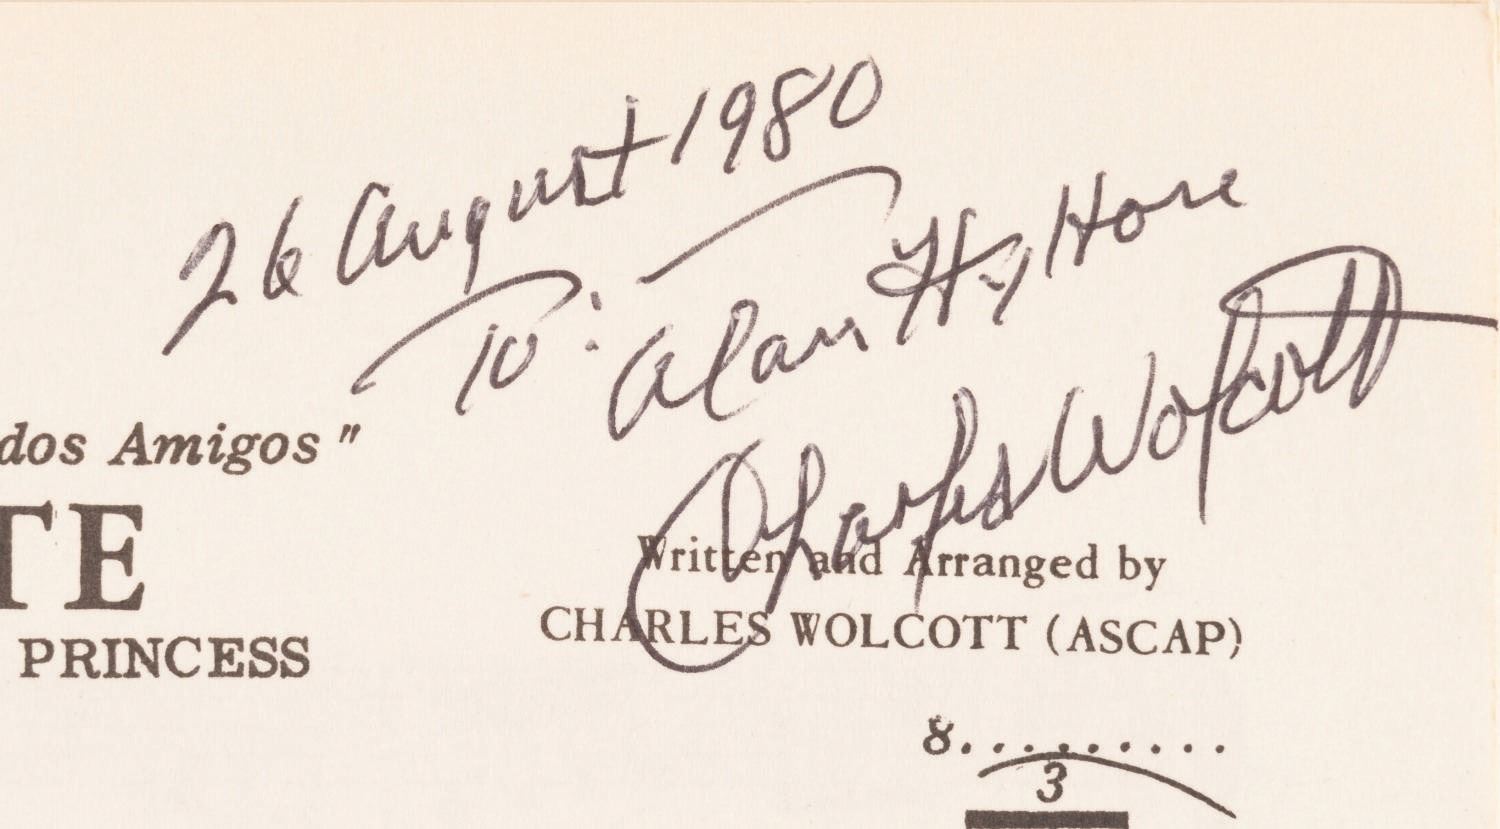 26 August 1980
To: Alan Hy Hore
Charles Wolcott
dos Amigos"
TE
PRINCESS
Written and Arranged by
CHARLES WOLCOTT (ASCAP)
8..........
3